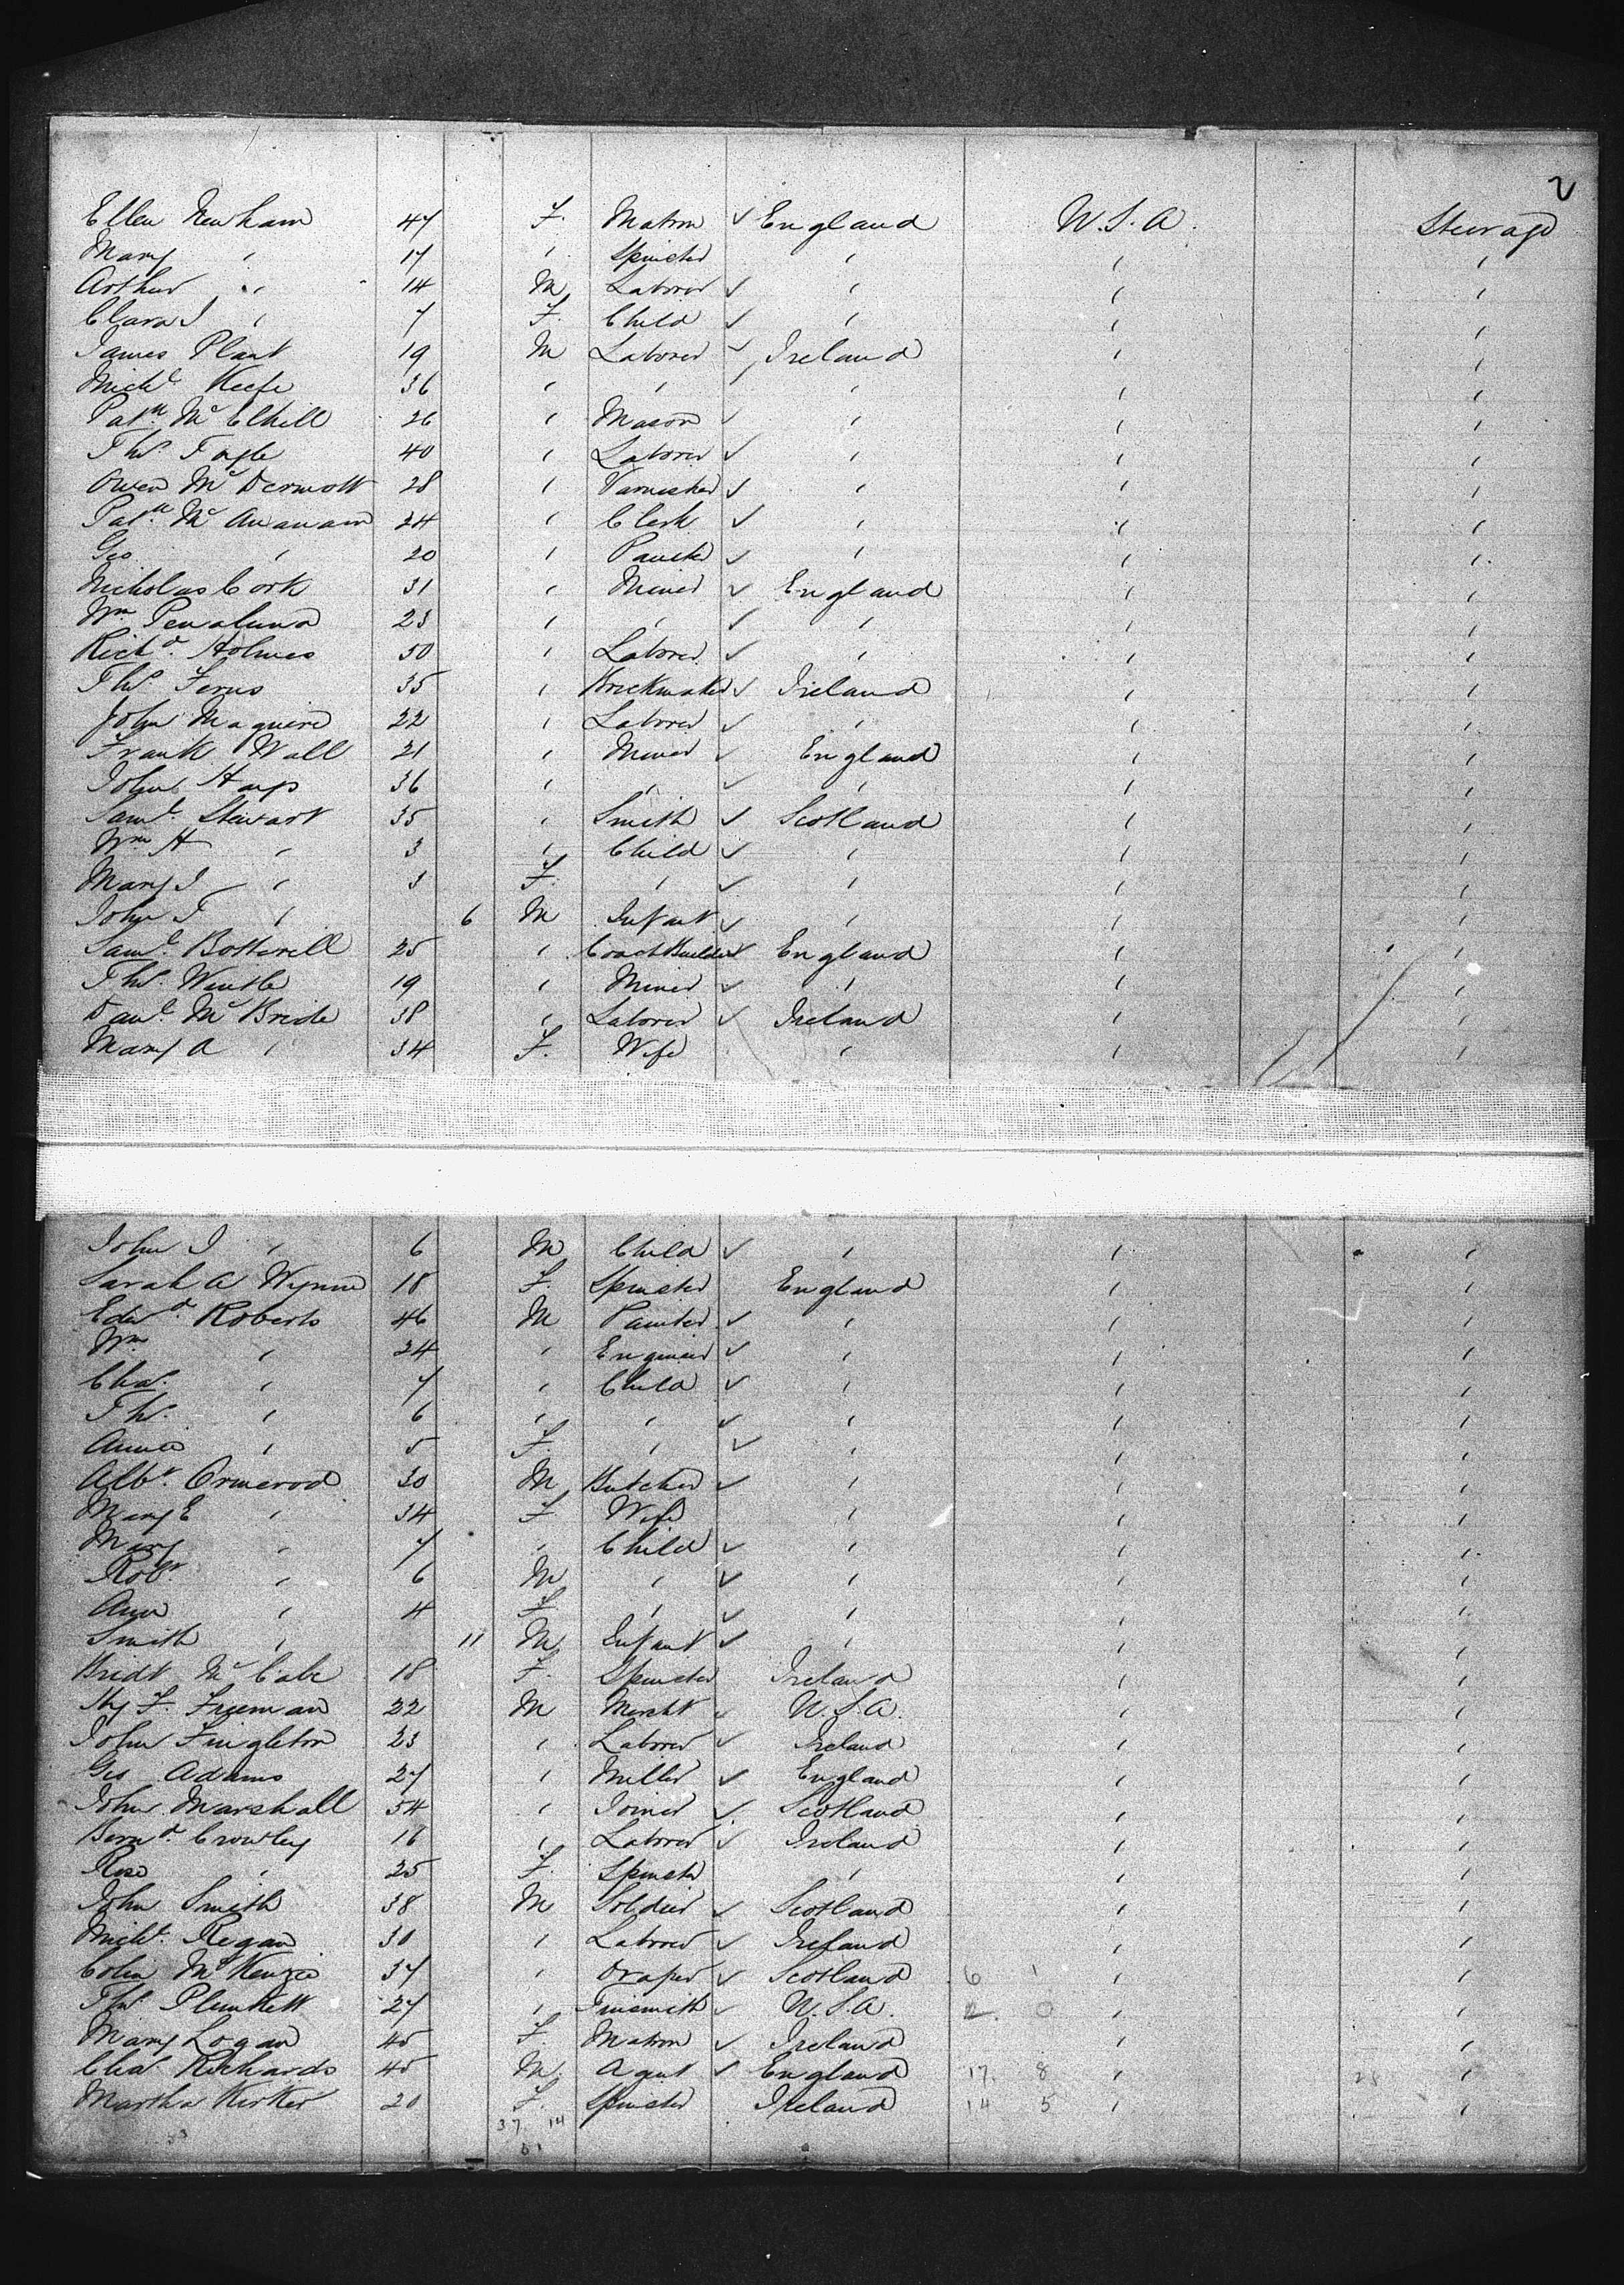 2
Ellen Newham 47 F. Matron ✓ England U.S.A. Steerage
Mary " 17 " Spinster " " "
Arthur " 14 M Laborer ✓ " " "
Clara J " 7 F. Child ✓ " " "
James Plant 19 M Laborer ✓ Ireland " "
Michl. Keefe 36 " " ✓ " " "
Patk. Mc Elhill 26 " Mason ✓ " " "
Thos. Fogle 40 " Laborer ✓ " " "
Owen Mc Dermott 28 " Varnisher ✓ " " "
Patk. Mc Ananam 24 " Clerk ✓ " " "
Geo " 20 " ✓ " " "
Nicholas Cork 31 " Miner ✓ England " "
Wm Penaluna 23 " " ✓ " " "
Richd. Holmes 50 " Laborer ✓ " " "
Thos. Ferns 35 " Brickmaker ✓ Ireland " "
John Maguire 22 " Laborer ✓ " " "
Frank Wall 21 " Miner ✓ England " "
John Hays 36 " " ✓ " " "
Saml. Stewart 35 " Smith ✓ Scotland " "
Wm H " 3 " Child ✓ " " "
Mary J " 3 F. " ✓ " " "
John T " 6 M Infant ✓ " " "
Saml. Botterell 25 " CoachBuilder ✓ England " "
Thos. Wintle 19 " Miner ✓ " " "
Danl. Mc Bride 38 " Laborer ✓ Ireland " "
Mary A " 34 F. Wife " " "
John J " 6 M Child ✓ " " "
Sarah A Wynne 18 F. Spinster England " "
Edwd. Roberts 46 M Painter ✓ " " "
Wm " 24 " Engineer ✓ " " "
Chas. " 7 " Child ✓ " " "
Thos. " 6 " " ✓ " " "
Annie " 5 F. " ✓ " " "
Albt. Ormerod 30 M Butcher ✓ " " "
Mary E " 34 F Wife " " "
Mary " 7 " Child ✓ " " "
Robt. " 6 M " ✓ " " "
Ann " 4 F " ✓ " " "
Smith " 11 M Infant ✓ " " "
Bridt Mc Cabe 18 F. Spinster Ireland " "
Hy F. Freeman 22 M Mercht ✓ U.S.A. " "
John Fingleton 23 " Laborer ✓ Ireland " "
Geo Adams 27 " Miller ✓ England " "
John Marshall 54 " Joiner ✓ Scotland " "
Bernd. Crowley 16 " Laborer ✓ Ireland " "
Rose " 25 F. Spinster " " "
John Smith 38 M Soldier ✓ Scotland " "
Michl. Regan 30 " Laborer ✓ Ireland " "
Colin Mc Kenzie 37 " Draper ✓ Scotland 6 1 " "
Thos. Plunkett 27 " Tinsmith ✓ U.S.A. 2. 0 " "
Mary Logan 45 F Matron ✓ Ireland " "
Chas. Richards 45 M. Agent ✓ England 17. 8 " 28 "
Martha Kirker 20 F. Spinster Ireland 14 5 " "
37 14
51
53